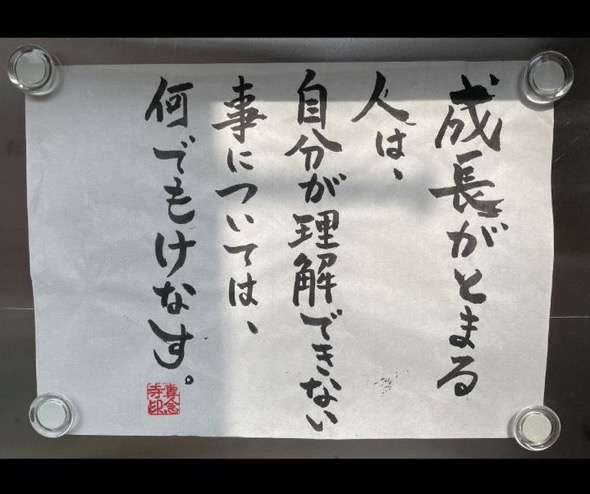 成長がとまる
人は、
自分が理解できない
事については、
何でもけなす。